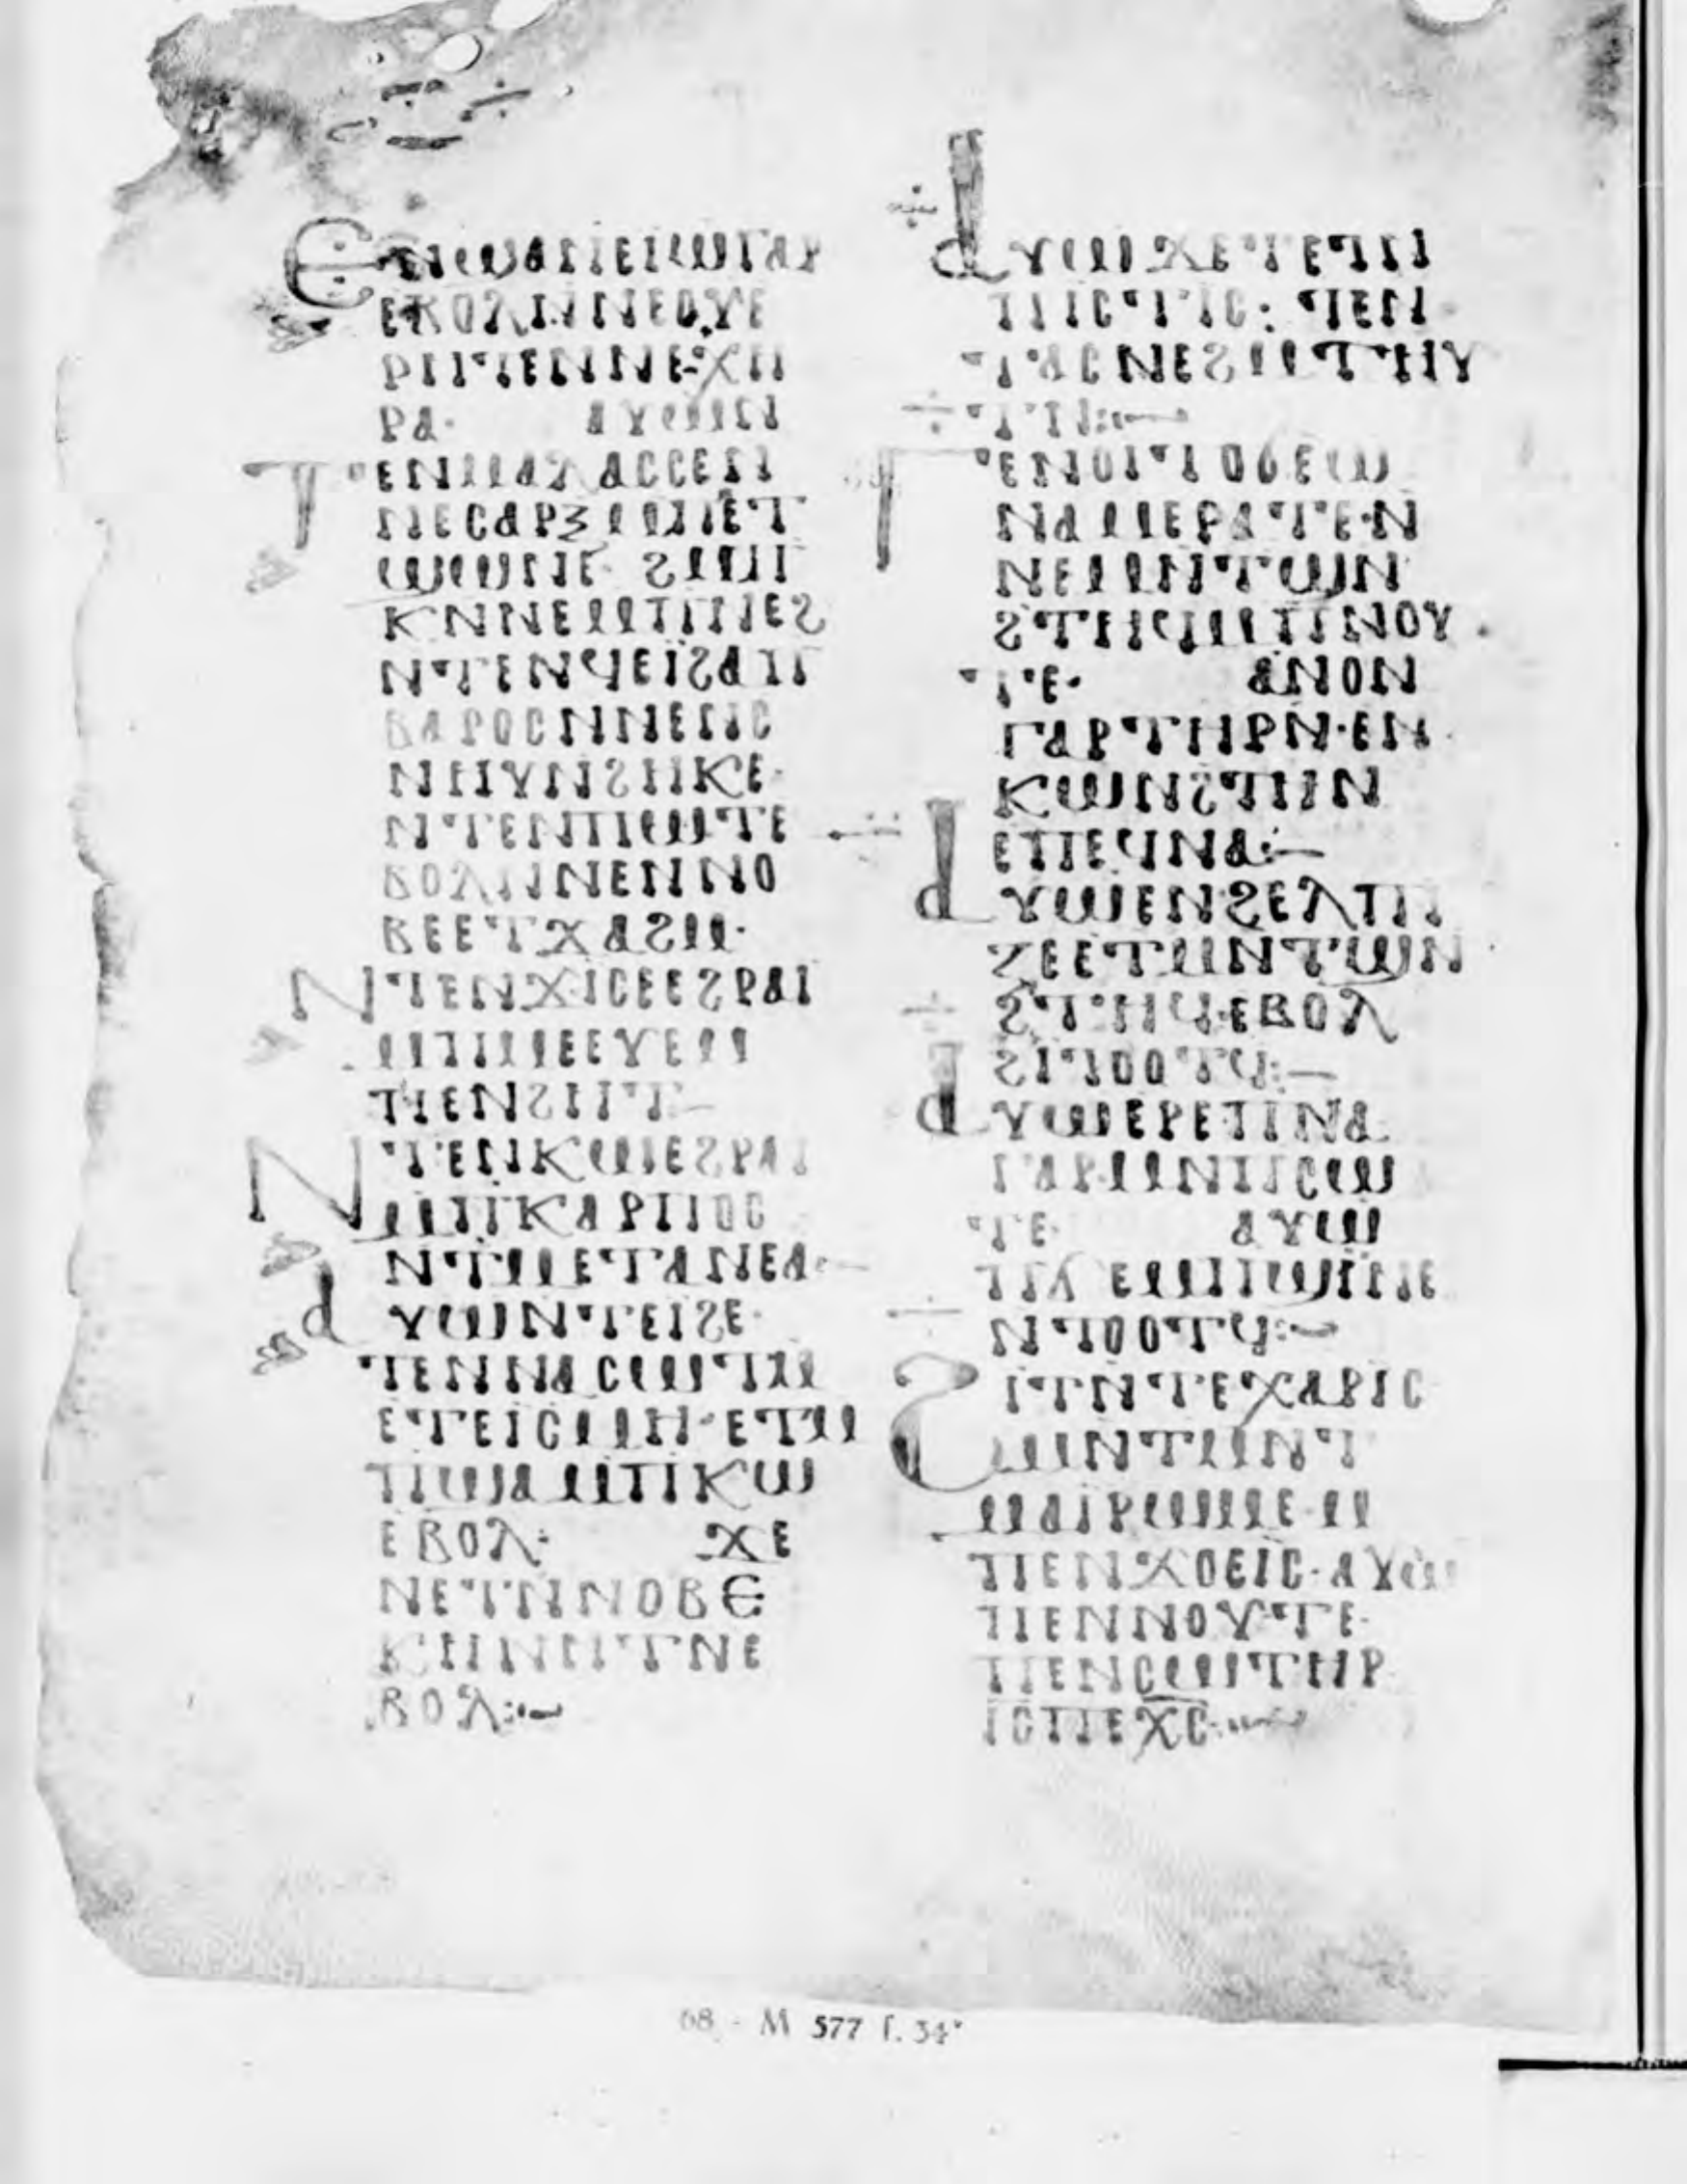 ⲉⲛϣⲁⲛⲉⲓⲱ ⲅⲁⲣ
ⲉⲃⲟⲗ ⲛⲛⲉⲟⲩⲉ
ⲣⲏⲧⲉ ⲛⲛⲉⲭⲏ
ⲣⲁ· ⲁⲩⲱⲛ
ⲧⲉⲛⲙⲁⲗⲁⲥⲥⲉ ⲛ
ⲛⲉⲥⲁⲣⲝ ⲛⲛⲉⲧ
ϣⲱⲛⲉ· ϩⲙⲡ
ⲕⲛⲛⲉ ⲙⲡⲛⲉϩ
ⲛⲧⲉⲛϥⲉⲓ ϩⲁⲡ
ⲃⲁⲣⲟⲥ ⲛⲛⲉⲛⲥ
ⲛⲏⲩ ⲛϩⲏⲕⲉ·
ⲛⲧⲉⲛϥⲱⲧⲉ
ⲃⲟⲗ ⲛⲛⲉⲛⲛⲟ
ⲃⲉ ⲉⲧϫⲁϩⲙ·
ⲛⲧⲉⲛϫⲓⲥⲉ ⲉϩⲣⲁⲓ
ⲙⲡⲙⲉⲉⲩⲉ ⲙ
ⲡⲉⲛϩⲏⲧ:—
ⲛⲧⲉⲛⲕⲱ ⲉϩⲣⲁⲓ
ⲙⲡⲕⲁⲣⲡⲟⲥ
ⲛⲧⲙⲉⲧⲁⲛⲉⲁ·—
ⲁⲩⲱ ⲛⲧⲉⲓϩⲉ·
ⲧⲉⲛⲛⲁⲥⲱⲧⲙ
ⲉⲧⲉⲓⲥⲙⲏ· ⲉⲧⲙ
ⲡϣⲁ ⲙⲡⲕⲱ
ⲉⲃⲟⲗ· ϫⲉ
ⲛⲉⲧⲛⲛⲟⲃⲉ
ⲕⲏ ⲛⲏⲧⲛ ⲉ
ⲃⲟⲗ:—
ⲁⲩⲱ ϫⲉ ⲧⲉⲧⲛ
ⲡⲓⲥⲧⲓⲥ: ⲧⲉⲛ
ⲧⲁⲥⲛⲉϩⲙ ⲧⲏⲩ
ⲧⲛ:—
ⲧⲉⲛⲟⲩ ϭⲉ ⲱ
ⲛⲁⲙⲉⲣⲁⲧⲉ· ⲛ
ⲛⲉⲙⲛⲧϣⲛ
ϩⲧⲏϥ ⲙⲡⲛⲟⲩ
ⲧⲉ· ⲁⲛⲟⲛ
ⲅⲁⲣ ⲧⲏⲣⲛ· ⲉⲛ
ⲕⲱ ⲛϩⲧⲏⲛ
ⲉⲡⲉϥⲛⲁ:—
ⲁⲩⲱ ⲉⲛϩⲉⲗⲡⲓ
ⲍⲉ ⲉⲧⲙⲛⲧϣⲛ
ϩⲧⲏϥ· ⲉⲃⲟⲗ
ϩⲓⲧⲟⲟⲧϥ:—
ⲁⲩⲱ ⲉⲣⲉ ⲡⲛⲁ
ⲅⲁⲣ ⲙⲛ ⲡⲥⲱ
ⲧⲉ· ⲁⲩⲱ
ⲡϣⲓⲛⲉ
ⲛⲧⲟⲟⲧϥ:—
ϩⲓⲧⲛ ⲧⲉⲭⲁⲣⲓⲥ
ⲙⲛ ⲧⲙⲛⲧ
ⲙⲁⲓⲣⲱⲙⲉ ⲙ
ⲡⲉⲛϫⲟⲉⲓⲥ· ⲁⲩⲱ
ⲡⲉⲛⲛⲟⲩⲧⲉ·
ⲡⲉⲛⲥⲱⲧⲏⲣ
ⲓⲥ ⲡⲉⲭⲥ:—
68 - M 577 f. 34ᵛ